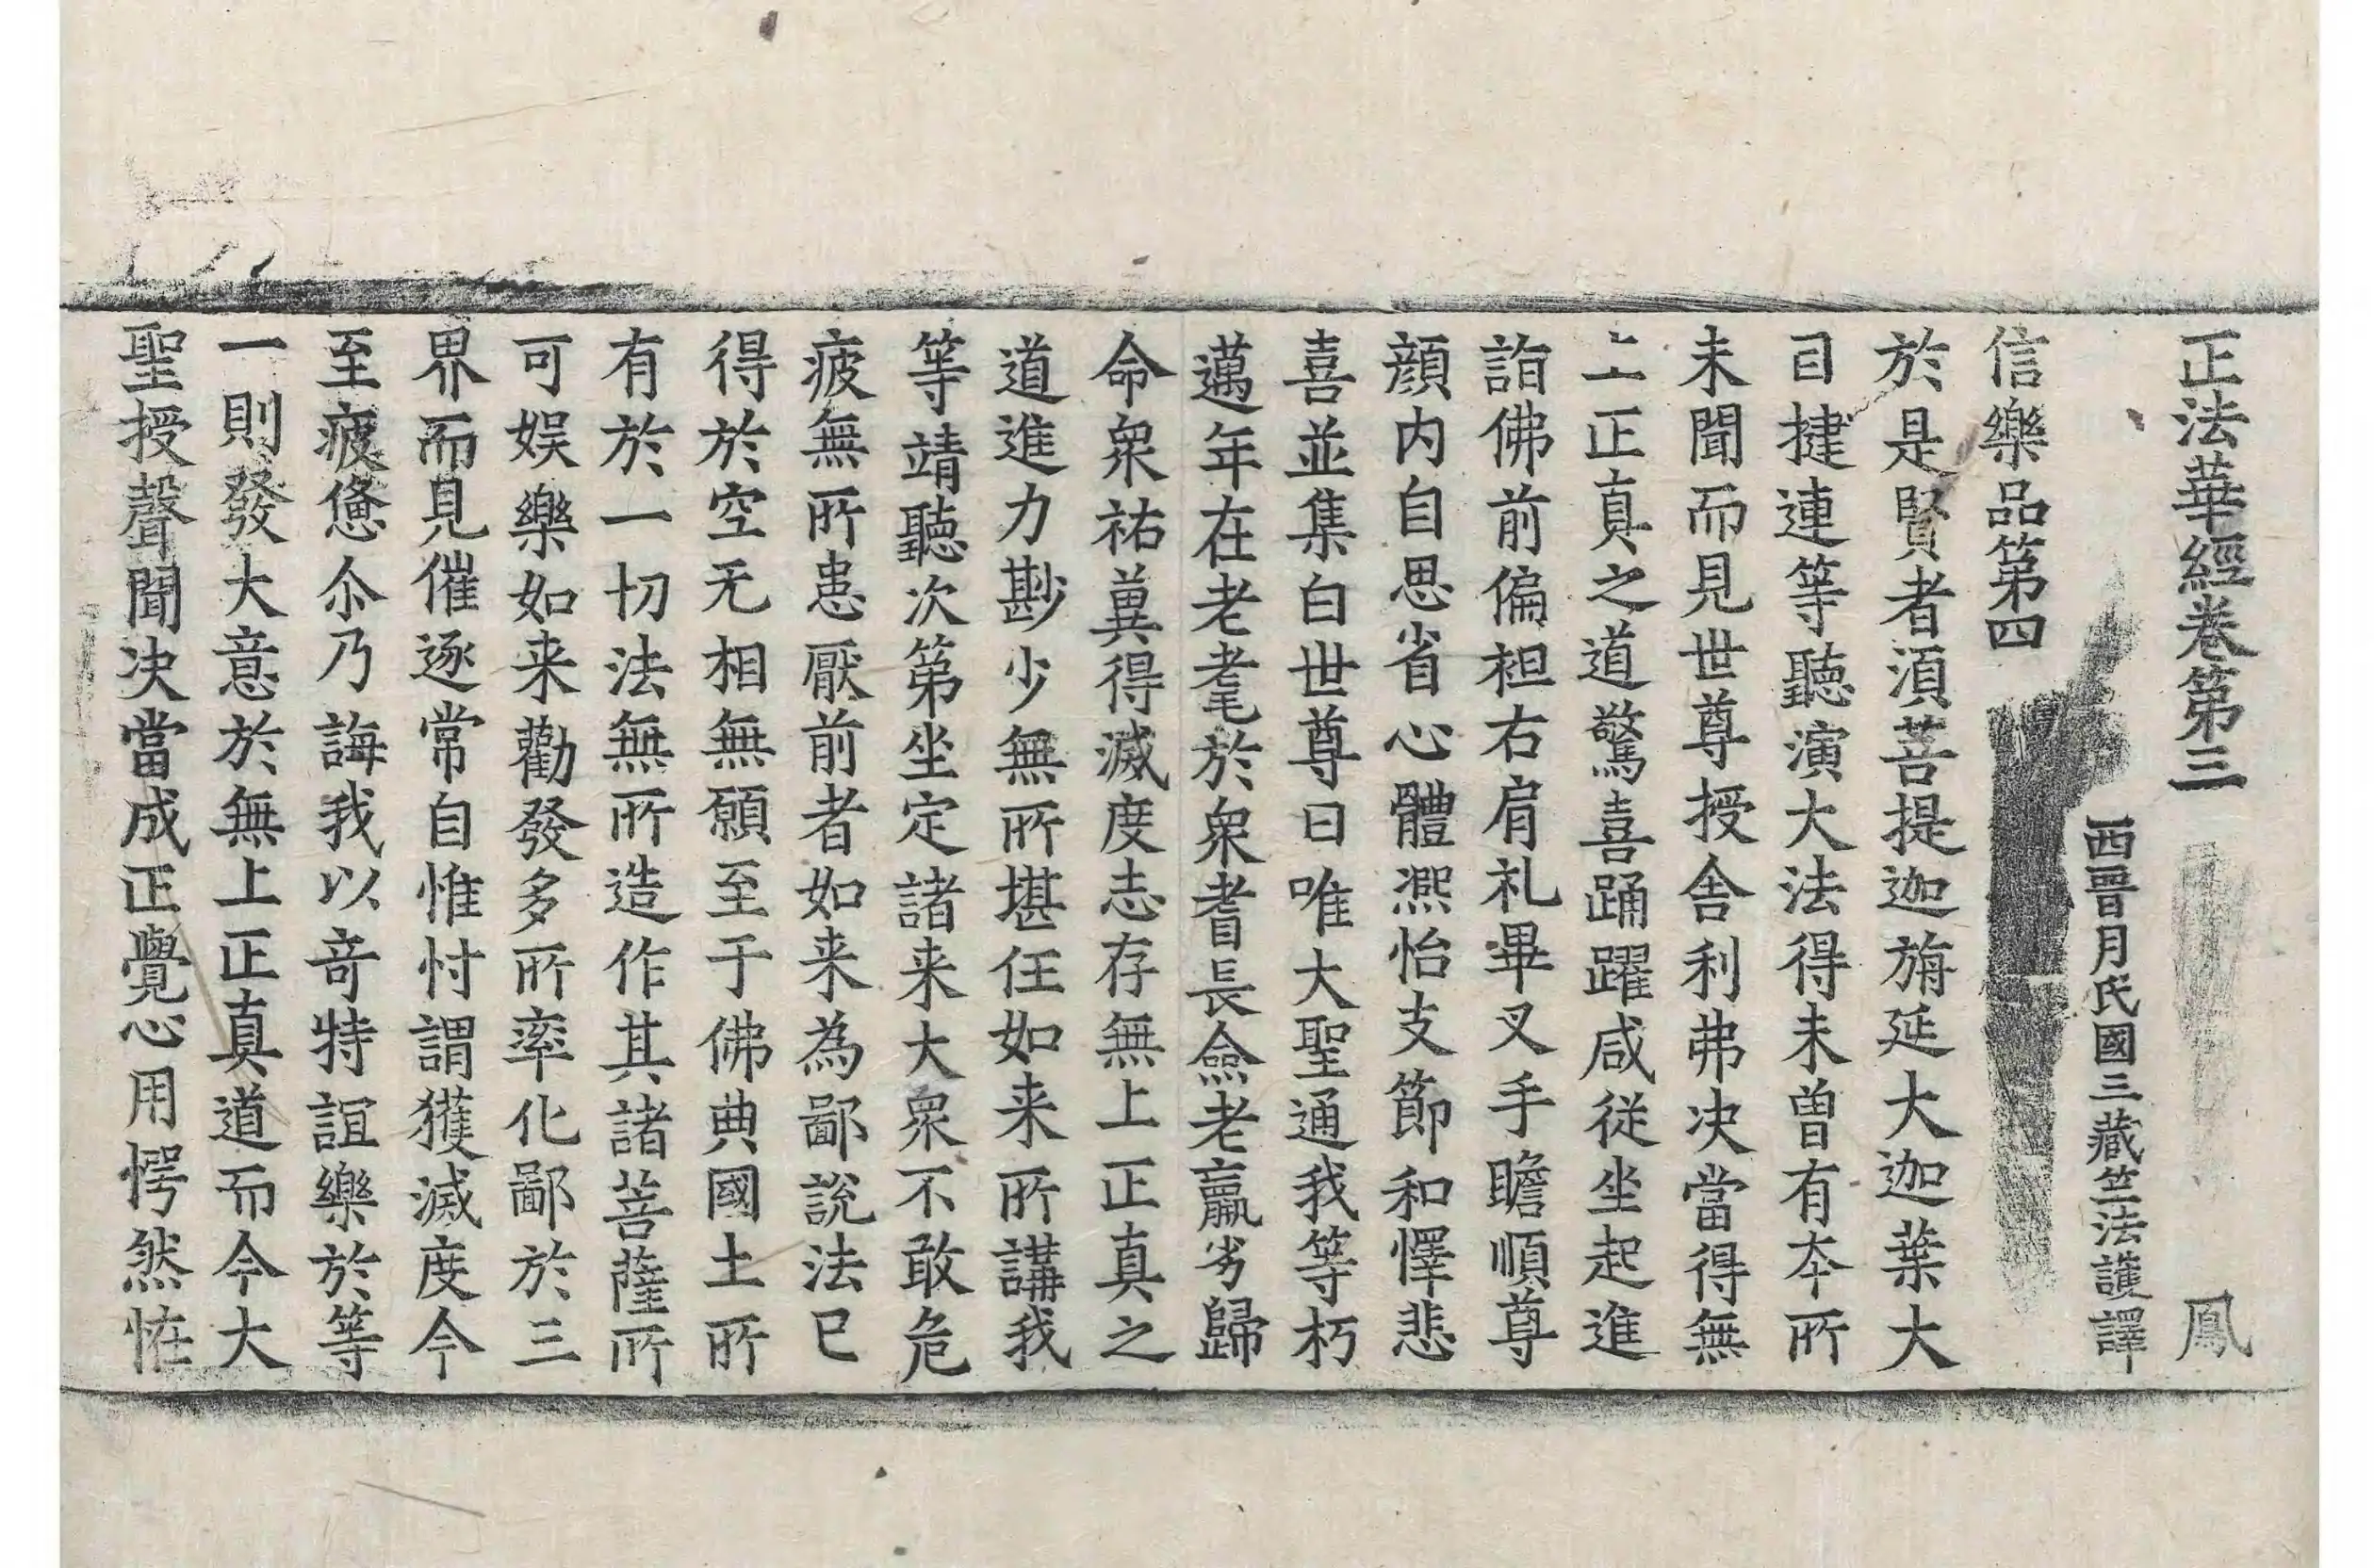 正法華經卷第三 鳳
西晉月氏國三藏竺法護譯
信樂品第四
於是賢者須菩提迦旃延大迦葉大
目揵連等聽演大法得未曾有本所
未聞而見世尊授舍利弗决當得無
上正真之道驚喜踊躍咸從坐起進
詣佛前偏袒右肩礼畢叉手瞻順尊
顔内自思省心體凞怡支節和懌悲
喜並集白世尊曰唯大聖通我等朽
邁年在老耄於衆耆長僉老羸劣歸
命衆祐兾得滅度志存無上正真之
道進力尠少無所堪任如来所講我
等靖聽次第坐定諸来大衆不敢危
疲無所患厭前者如来為鄙說法已
得於空无相無願至于佛典國土所
有於一切法無所造作其諸菩薩所
可娱樂如来勸發多所率化鄙於三
界而見催逐常自惟忖謂獲滅度今
至疲惫尒乃誨我以竒特誼樂於等
一則發大意於無上正真道而今大
聖授聲聞决當成正覺心用愕然恠